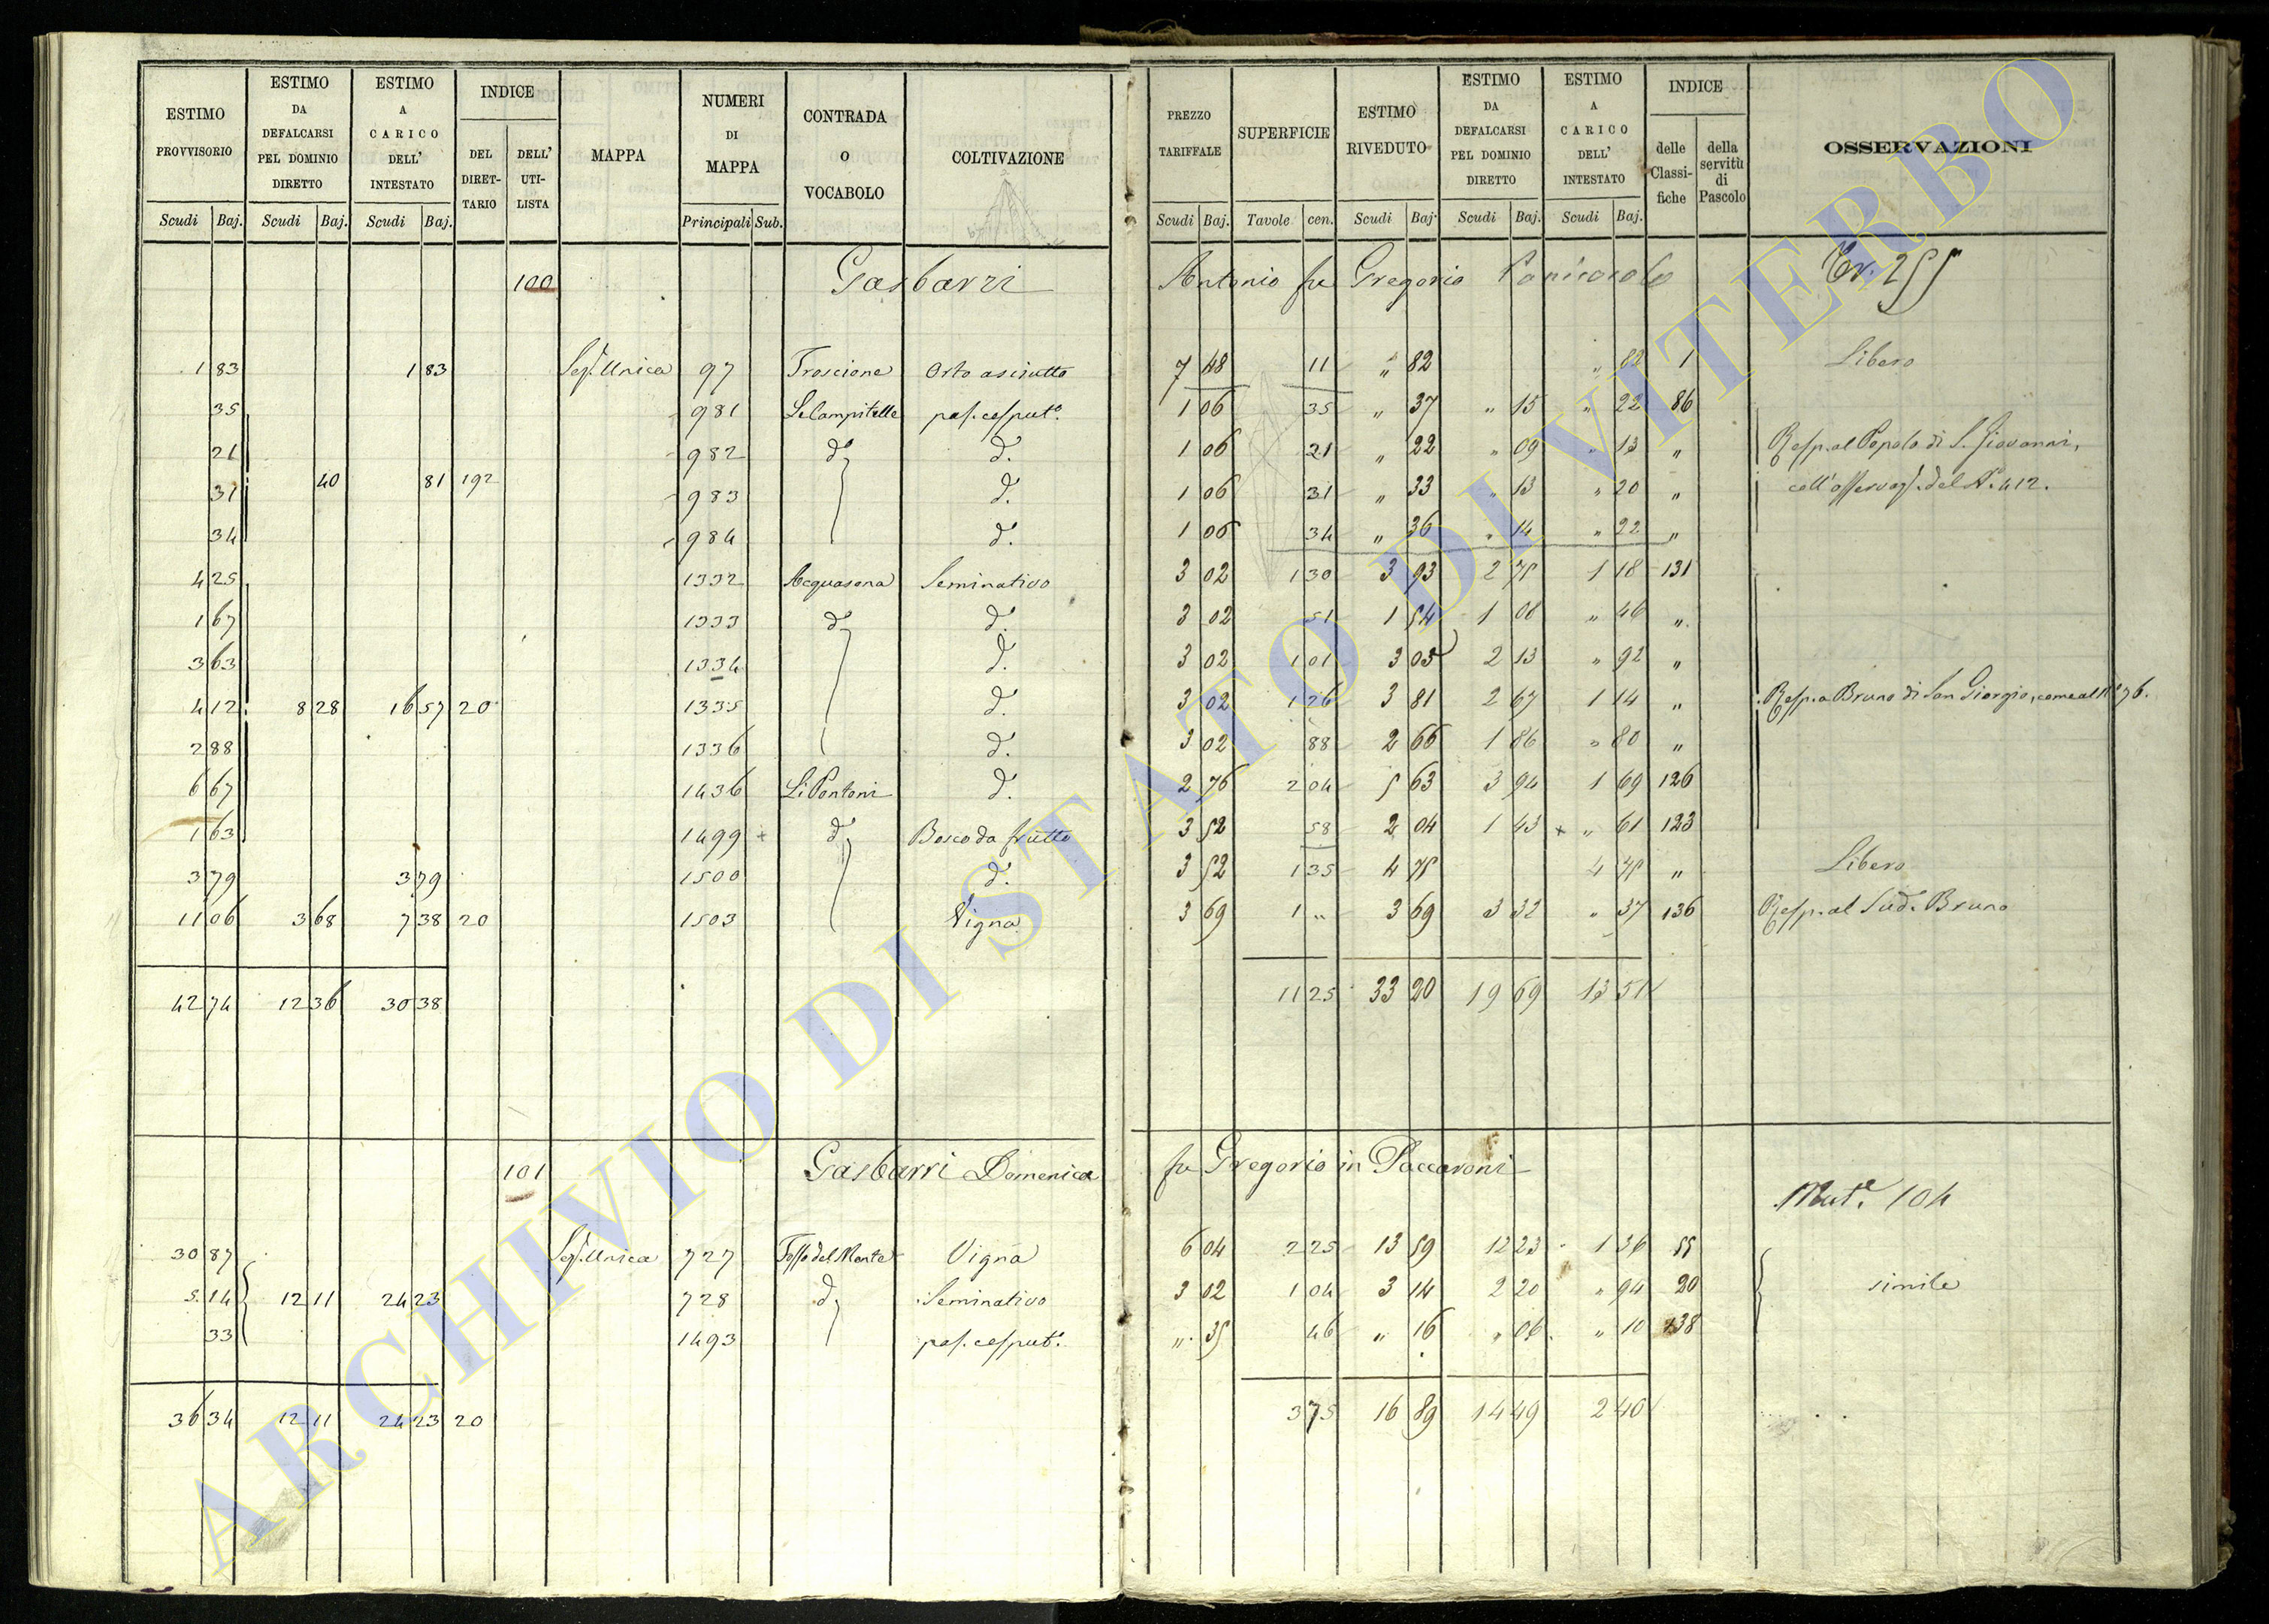 ESTIMO PROVVISORIO | ESTIMO DA DEFALCARSI PEL DOMINIO DIRETTO | ESTIMO A CARICO DELL' INTESTATO | INDICE | MAPPA | NUMERI DI MAPPA | CONTRADA O VOCABOLO | COLTIVAZIONE | PREZZO TARIFFALE | SUPERFICIE | ESTIMO RIVEDUTO | ESTIMO DA DEFALCARSI PEL DOMINIO DIRETTO | ESTIMO A CARICO DELL' INTESTATO | INDICE | OSSERVAZIONI
DEL DIRET-TARIO | DELL' UTI-LISTA | delle Classi-fiche | della servitù di Pascolo
Scudi | Baj. | Scudi | Baj. | Scudi | Baj. | Principali | Sub. | Scudi | Baj. | Tavole | cen. | Scudi | Baj. | Scudi | Baj. | Scudi | Baj.
100 Gasbarri Antonio fu Gregorio
1 83 | 1 83 | Sez. Unica | 97 | Troscione | Orto asciutto | 7 48 | 11 | " 82 | " 82 | 1 | Libero
35 | 981 | Le Campitelle | pas. cesput.o | 1 06 | 35 | " 37 | " 15 | " 22 | 86
21 | 982 | d.o | d.o | 1 06 | 21 | " 22 | " 09 | " 13 | " | Resp. al Popolo di S. Giovanni,
31 | 40 | 81 | 192 | 983 | d.o | 1 06 | 31 | " 33 | " 13 | " 20 | " | coll'osservaz. del N.o 412.
34 | 984 | d.o | 1 06 | 34 | " 36 | " 14 | " 22 | "
4 25 | 1332 | Acquasona | Seminativo | 3 02 | 1 30 | 3 93 | 2 75 | 1 18 | 131
1 67 | 1333 | d.o | d.o | 3 02 | 51 | 1 54 | 1 08 | " 46 | "
3 63 | 1334 | d.o | 3 02 | 1 01 | 3 05 | 2 13 | " 92 | "
4 12 | 8 28 | 16 57 | 20 | 1335 | d.o | 3 02 | 1 26 | 3 81 | 2 67 | 1 14 | " | Resp. a Bruno di San Giorgio, come al N.o 76.
2 88 | 1336 | d.o | 3 02 | 88 | 2 66 | 1 86 | " 80 | "
6 67 | 1436 | Li Pontoni | d.o | 2 76 | 2 04 | 5 63 | 3 94 | 1 69 | 126
1 63 | 1499 + | d.o | Bosco da frutto | 3 52 | 58 | 2 04 | 1 43 | + " 61 | 123
3 79 | 3 79 | 1500 | d.o | 3 52 | 1 35 | 4 75 | 4 75 | " | Libero
11 06 | 3 68 | 7 38 | 20 | 1503 | Vigna | 3 69 | 1 " | 3 69 | 3 32 | " 37 | 136 | Resp. al Sud.o Bruno
42 74 | 12 36 | 30 38 | 11 25 | 33 20 | 19 69 | 13 51
101 Gasbarri Domenica fu Gregorio in Paccaroni
Mut.e 104
30 87 | Sez. Unica | 727 | Fosso del Monte | Vigna | 6 04 | 2 25 | 13 59 | 12 23 | 1 36 | 55
5 14 | 12 11 | 24 23 | 728 | d.o | Seminativo | 3 02 | 1 04 | 3 14 | 2 20 | " 94 | 20 | simile
33 | 1493 | pas. cesput.o | " 35 | 46 | " 16 | " 06 | " 10 | 138
36 34 | 12 11 | 24 23 | 20 | 3 75 | 16 89 | 14 49 | 2 40
ARCHIVIO DI STATO DI VITERBO